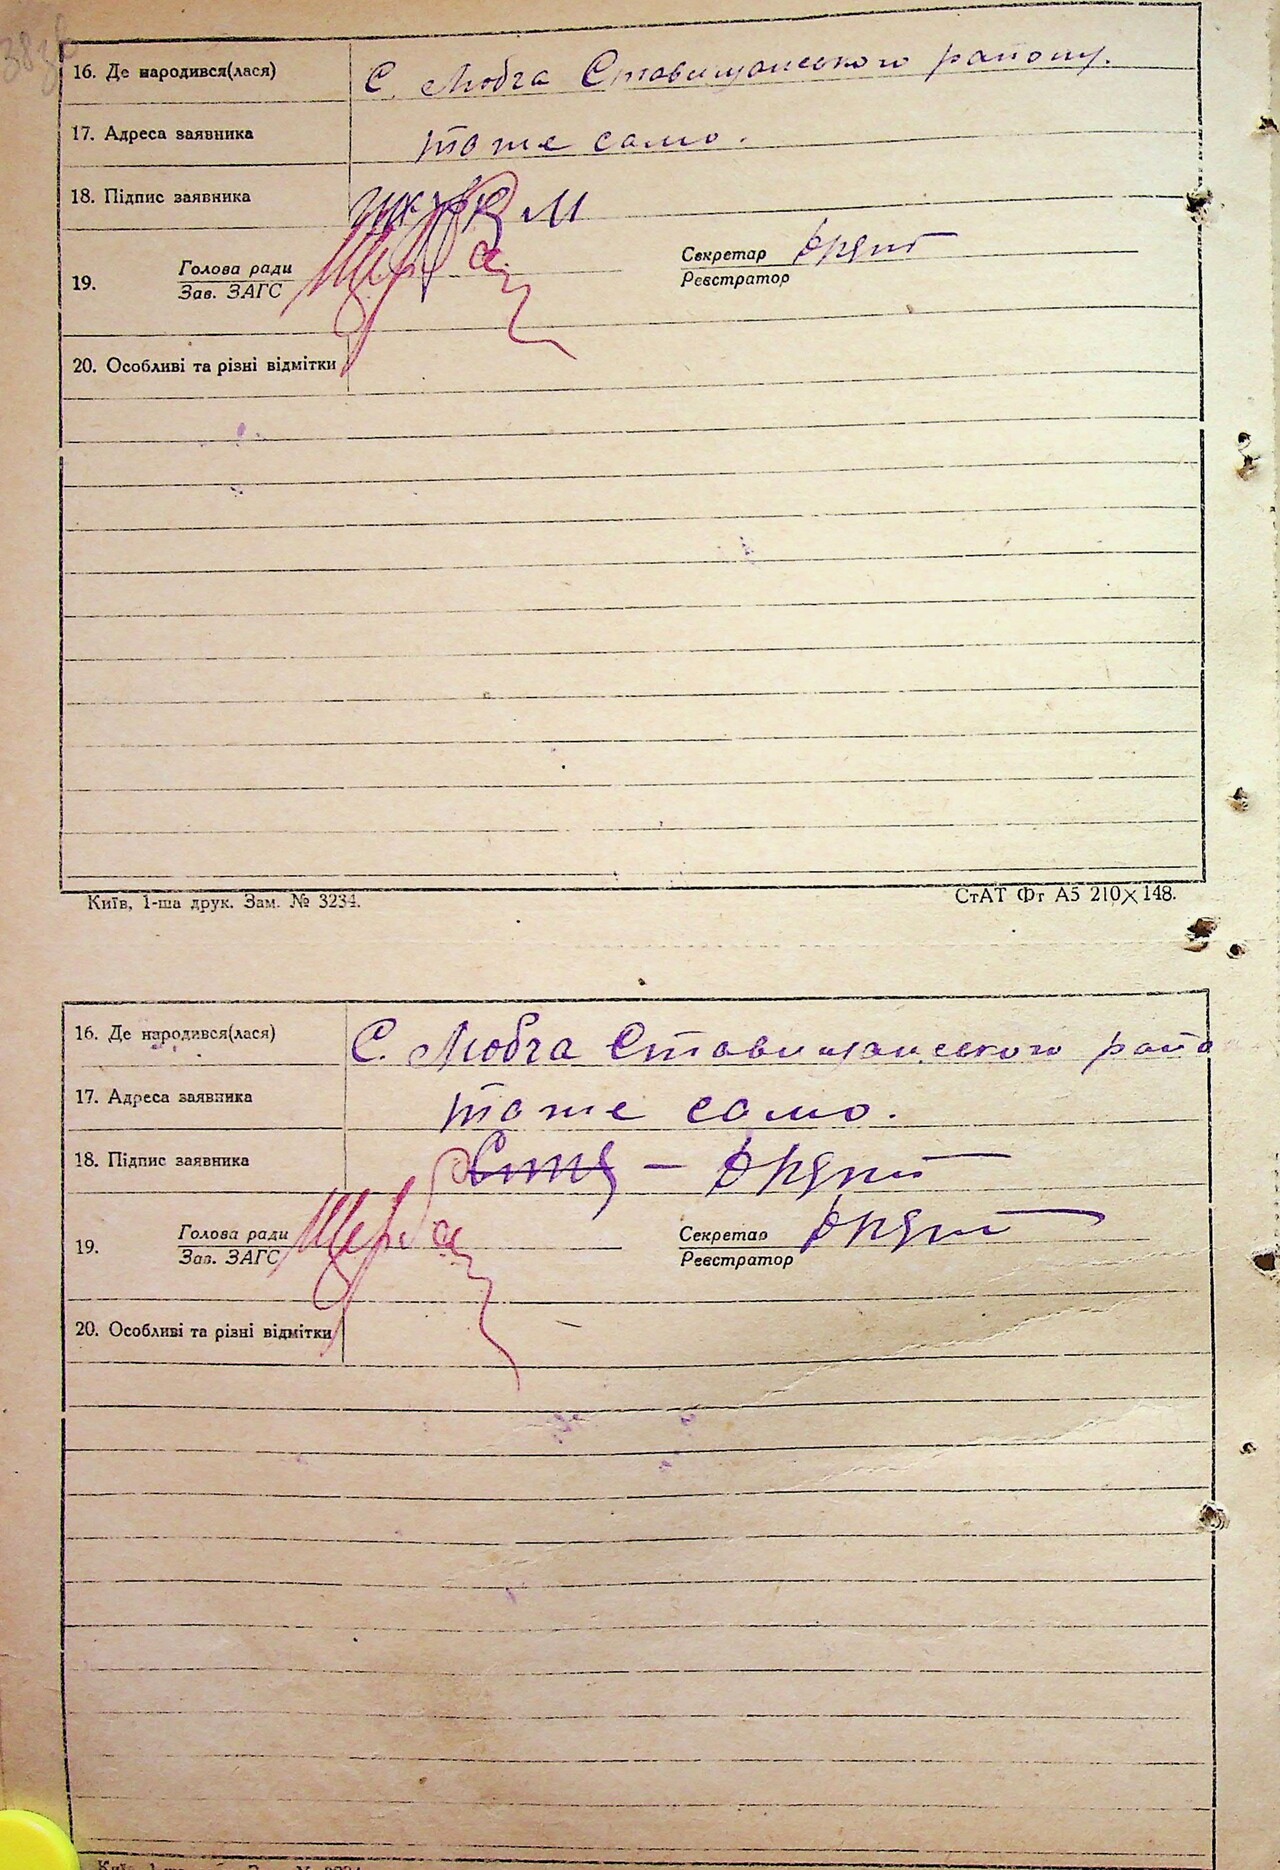 38зв
16. Де народився(лася) С. Любча Ставищанського району.
17. Адреса заявника тоже само.
18. Підпис заявника М
19. Голова ради Секретар
Зав. ЗАГС Реєстратор
20. Особливі та різні відмітки
Київ, 1-ша друк. Зам. № 3234. СтАТ Фт А5 210×148.
16. Де народився(лася) С. Любча Ставищанського райо
17. Адреса заявника тоже само.
18. Підпис заявника
19. Голова ради Щерба Секретар
Зав. ЗАГС Реєстратор
20. Особливі та різні відмітки